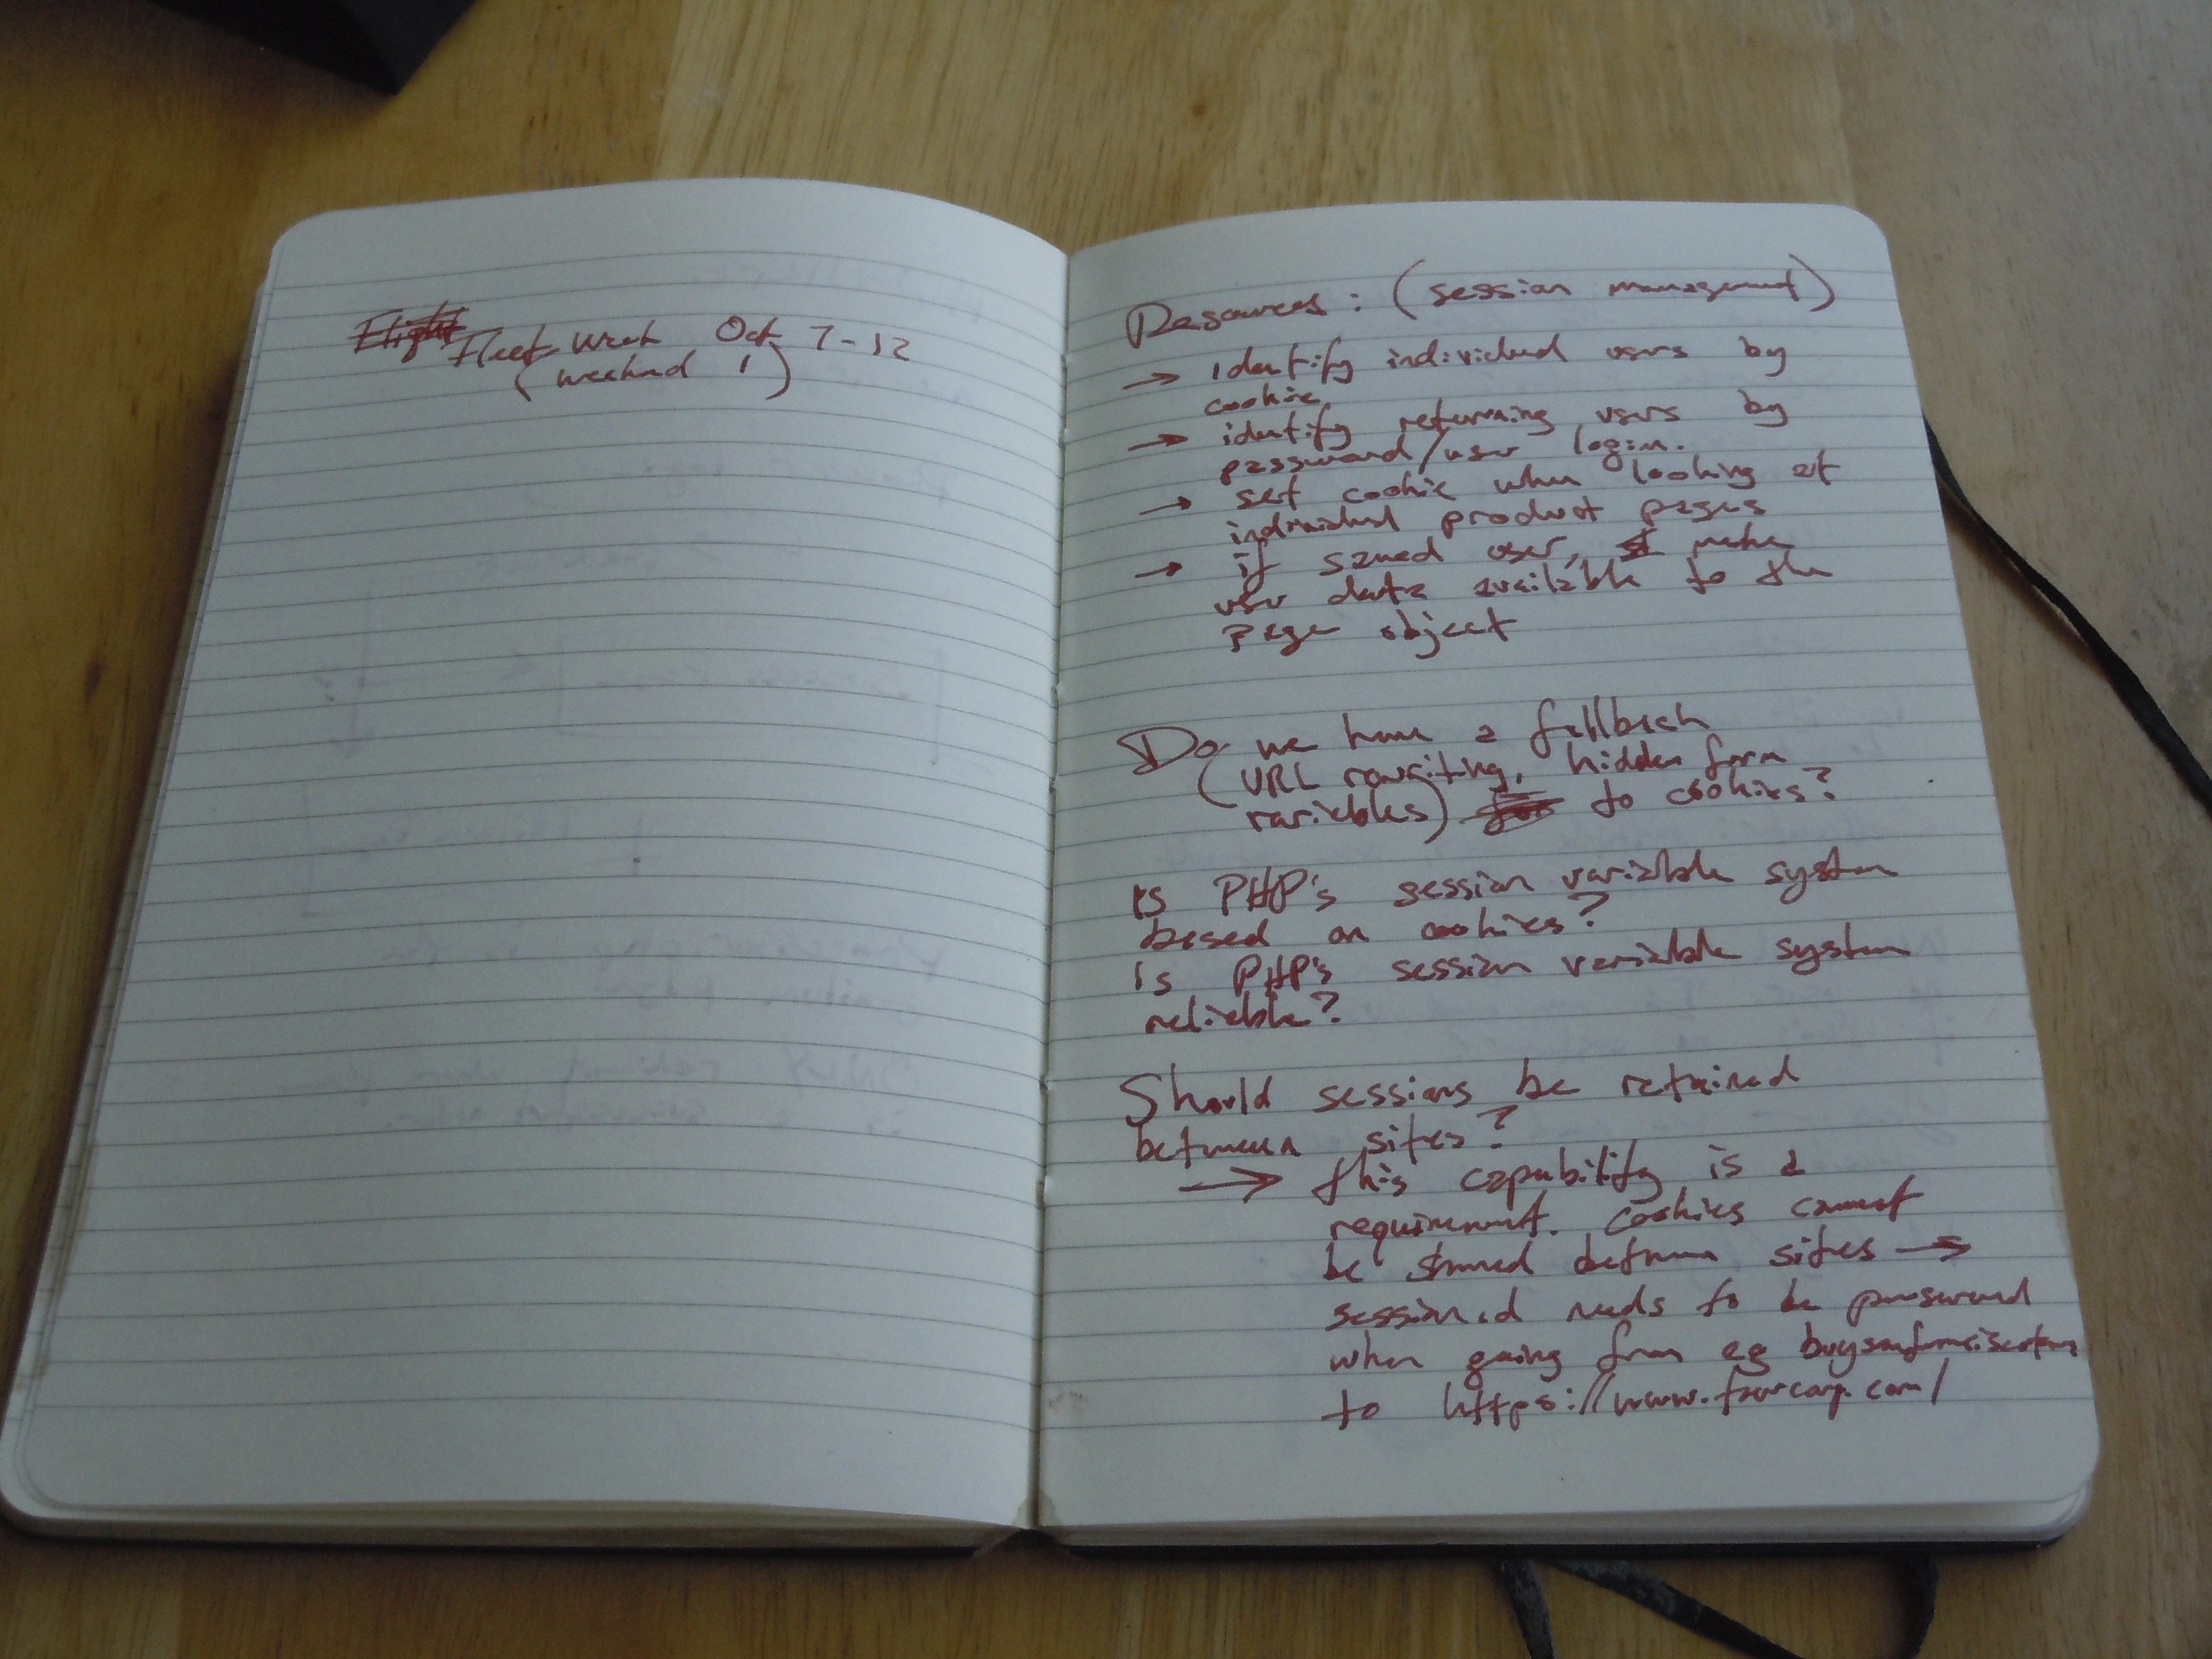 Flight Fleet Week Oct 7-12
(weekend 1)
Resources: (session management)
→ identify individual users by
cookie.
→ identify returning users by
password/user login.
→ set cookie when looking at
individual product pages
→ if saved user, make
user data available to the
page object
Do we have a fallback
(URL rewriting, hidden form
variables) for to cookies?
Is PHP's session variable system
based on cookies?
Is PHP's session variable system
reliable?
Should sessions be retained
between sites?
→ this capability is a
requirement. Cookies cannot
be shared between sites →
session id needs to be
when going from eg
to https://www.